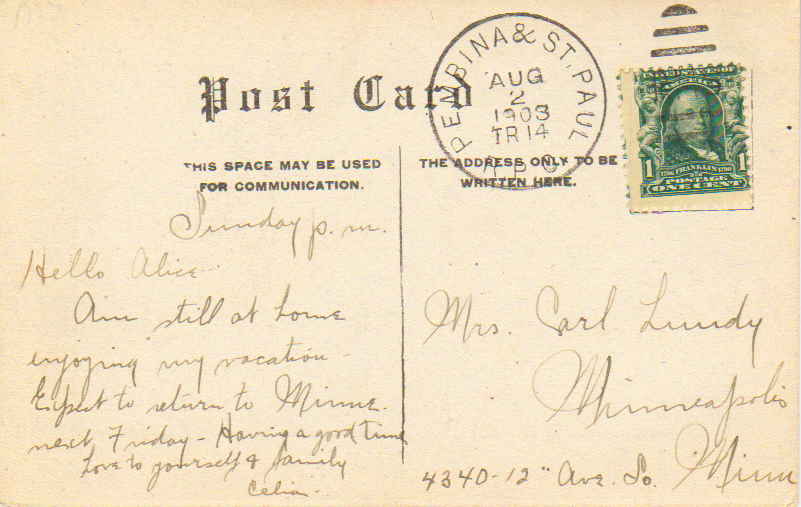 Post Card
THIS SPACE MAY BE USED
FOR COMMUNICATION.
THE ADDRESS ONLY TO BE
WRITTEN HERE.
PEMBINA & ST. PAUL
AUG
2
1908
TR 14
R.P.O.
1 FRANKLIN 1
POSTAGE
ONE CENT
Sunday p.m.
Hello Alice
Am still at home
enjoying my vacation -
Expect to return to Minne.
next Friday - Having a good time
Love to yourself & family
Mrs. Carl Lundy
Minneapolis
4340-12" Ave. So. Minn